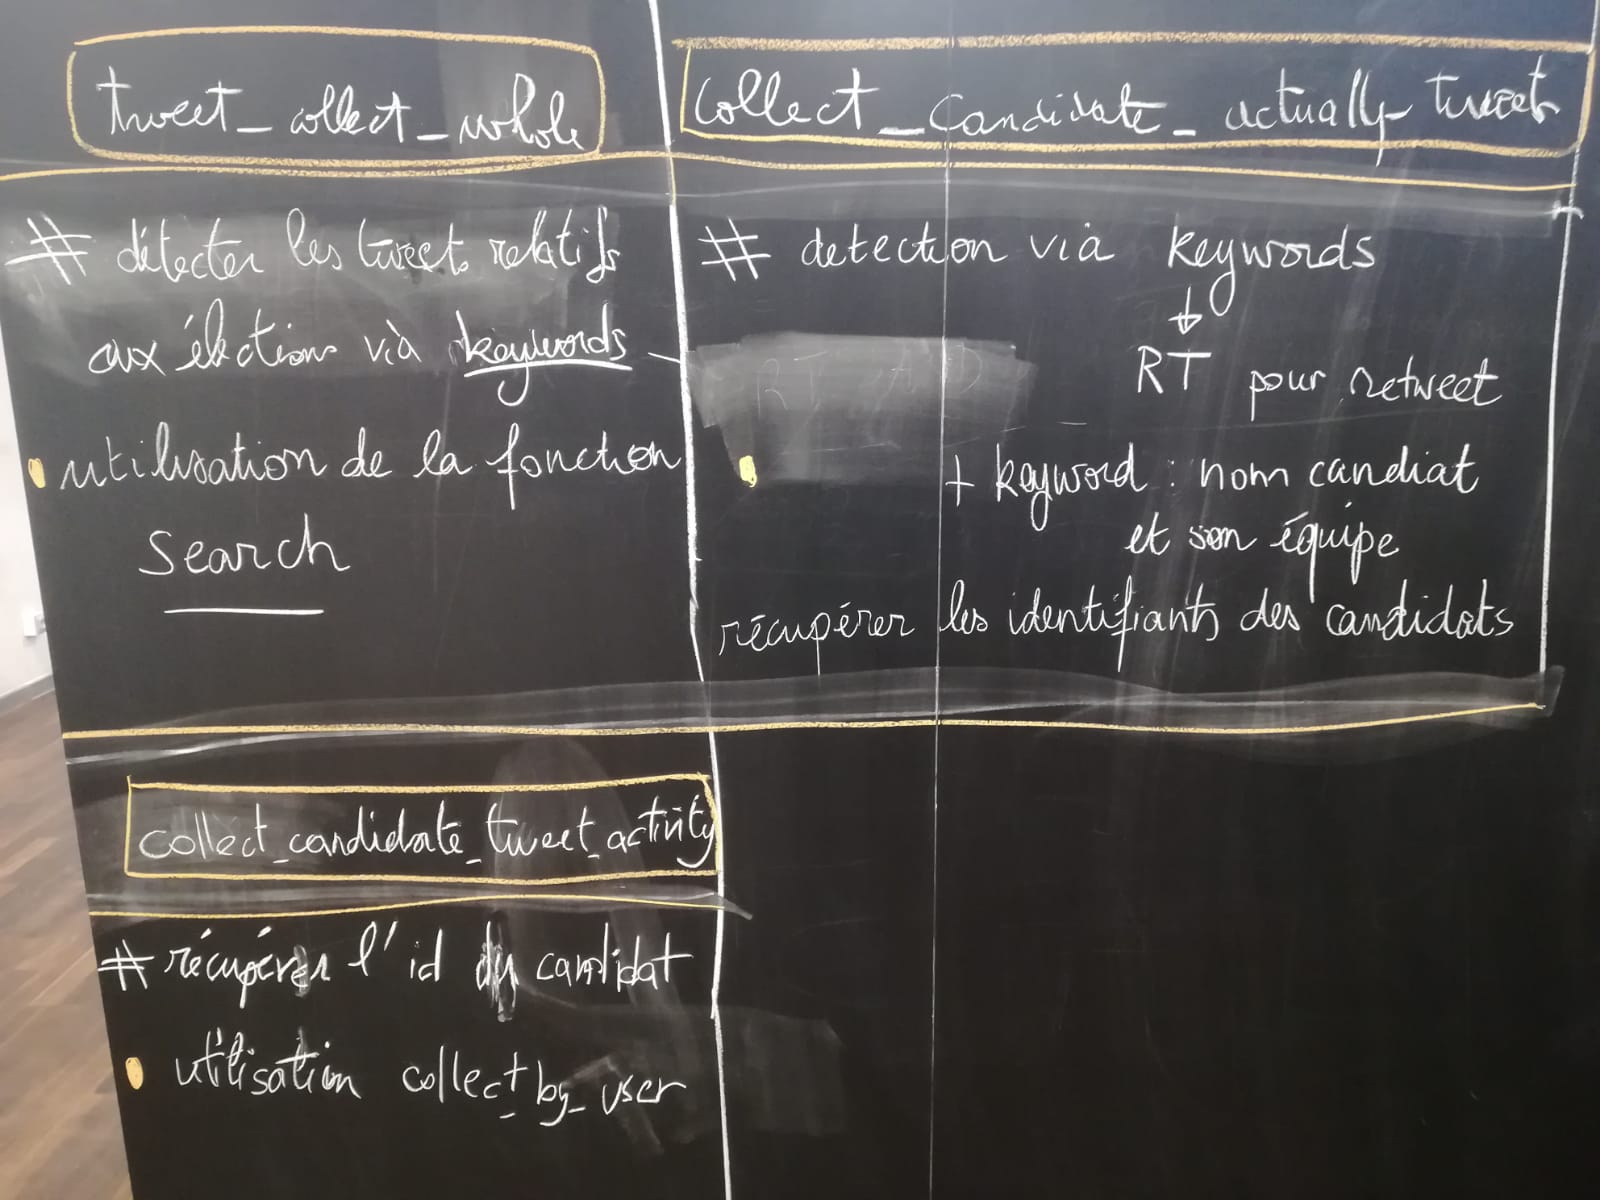 tweet_collect_whole
# détecter les tweets relatifs
aux élections via keywords
utilisation de la fonction
Search
collect_candidate_actually_tweets
# detection via keywords
RT pour retweet
+ keyword : nom candiat
et son équipe
récupérer les identifiants des candidats
collect_candidate_tweet_activity
# récupérer l'id du candidat
utilisation collect_by_user